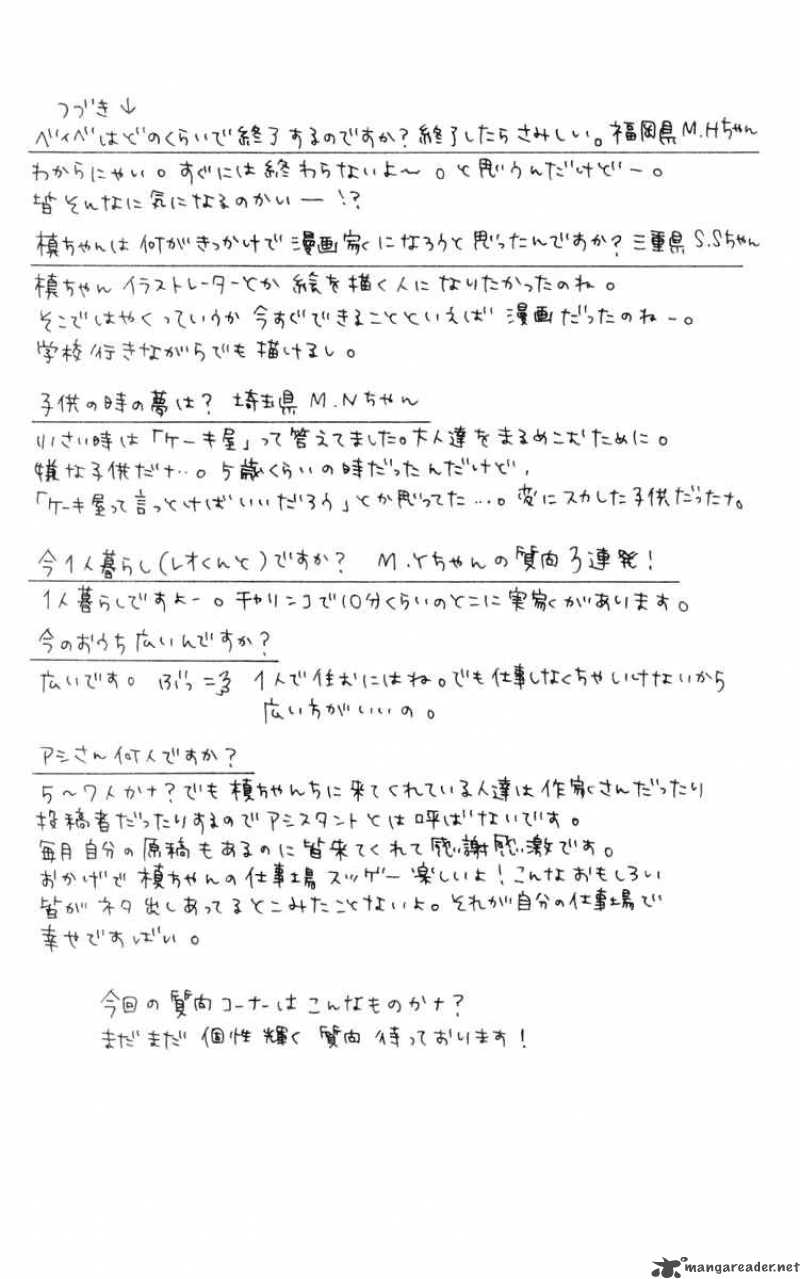 つづき↓
ベイベはどのくらいで終了するのですか？終了したらさみしい。福岡県M.Hちゃん
わからにゃい。すぐには終わらないよ〜。と思うんだけどー。
皆そんなに気になるのかいー!?
槙ちゃんは何がきっかけで漫画家になろうと思ったんですか？三重県S.Sちゃん
槙ちゃんイラストレーターとか絵を描く人になりたかったのね。
そこではやくっていうか今すぐできることといえば漫画だったのねー。
学校行きながらでも描けるし。
子供の時の夢は？埼玉県M.Nちゃん
小さい時は「ケーキ屋」って答えてました。大人達をまるめこむために。
嫌な子供だナ…。5歳くらいの時だったんだけど,
「ケーキ屋って言っとけばいいだろう」とか思ってた…。変にスカした子供だったナ。
今1人暮らし(レオくんと)ですか？ M.Yちゃんの質問3連発！
1人暮らしですよー。チャリンコで10分くらいのとこに実家があります。
今のおうち広いんですか？
広いです。ぶっこみ 1人で住むにはね。でも仕事しなくちゃいけないから
広い方がいいの。
アシさん何人ですか？
5〜7人かナ？でも槙ちゃんちに来てくれている人達は作家さんだったり
投稿者だったりするのでアシスタントとは呼ばないです。
毎月自分の原稿もあるのに皆来てくれて感謝感激です。
おかげで槙ちゃんの仕事場スッゲー楽しいよ！こんなおもしろい
皆がネタ出しあってるとこみたことないよ。それが自分の仕事場で
幸せですばい。
今回の質問コーナーはこんなものかナ？
まだまだ個性輝く質問待っております！
mangareader.net